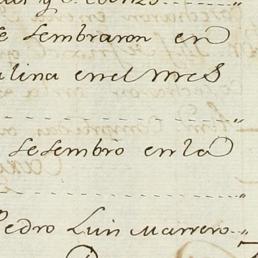 se sembraron en
lina en el mes
se sembro en la
Pedro Luis Marrero